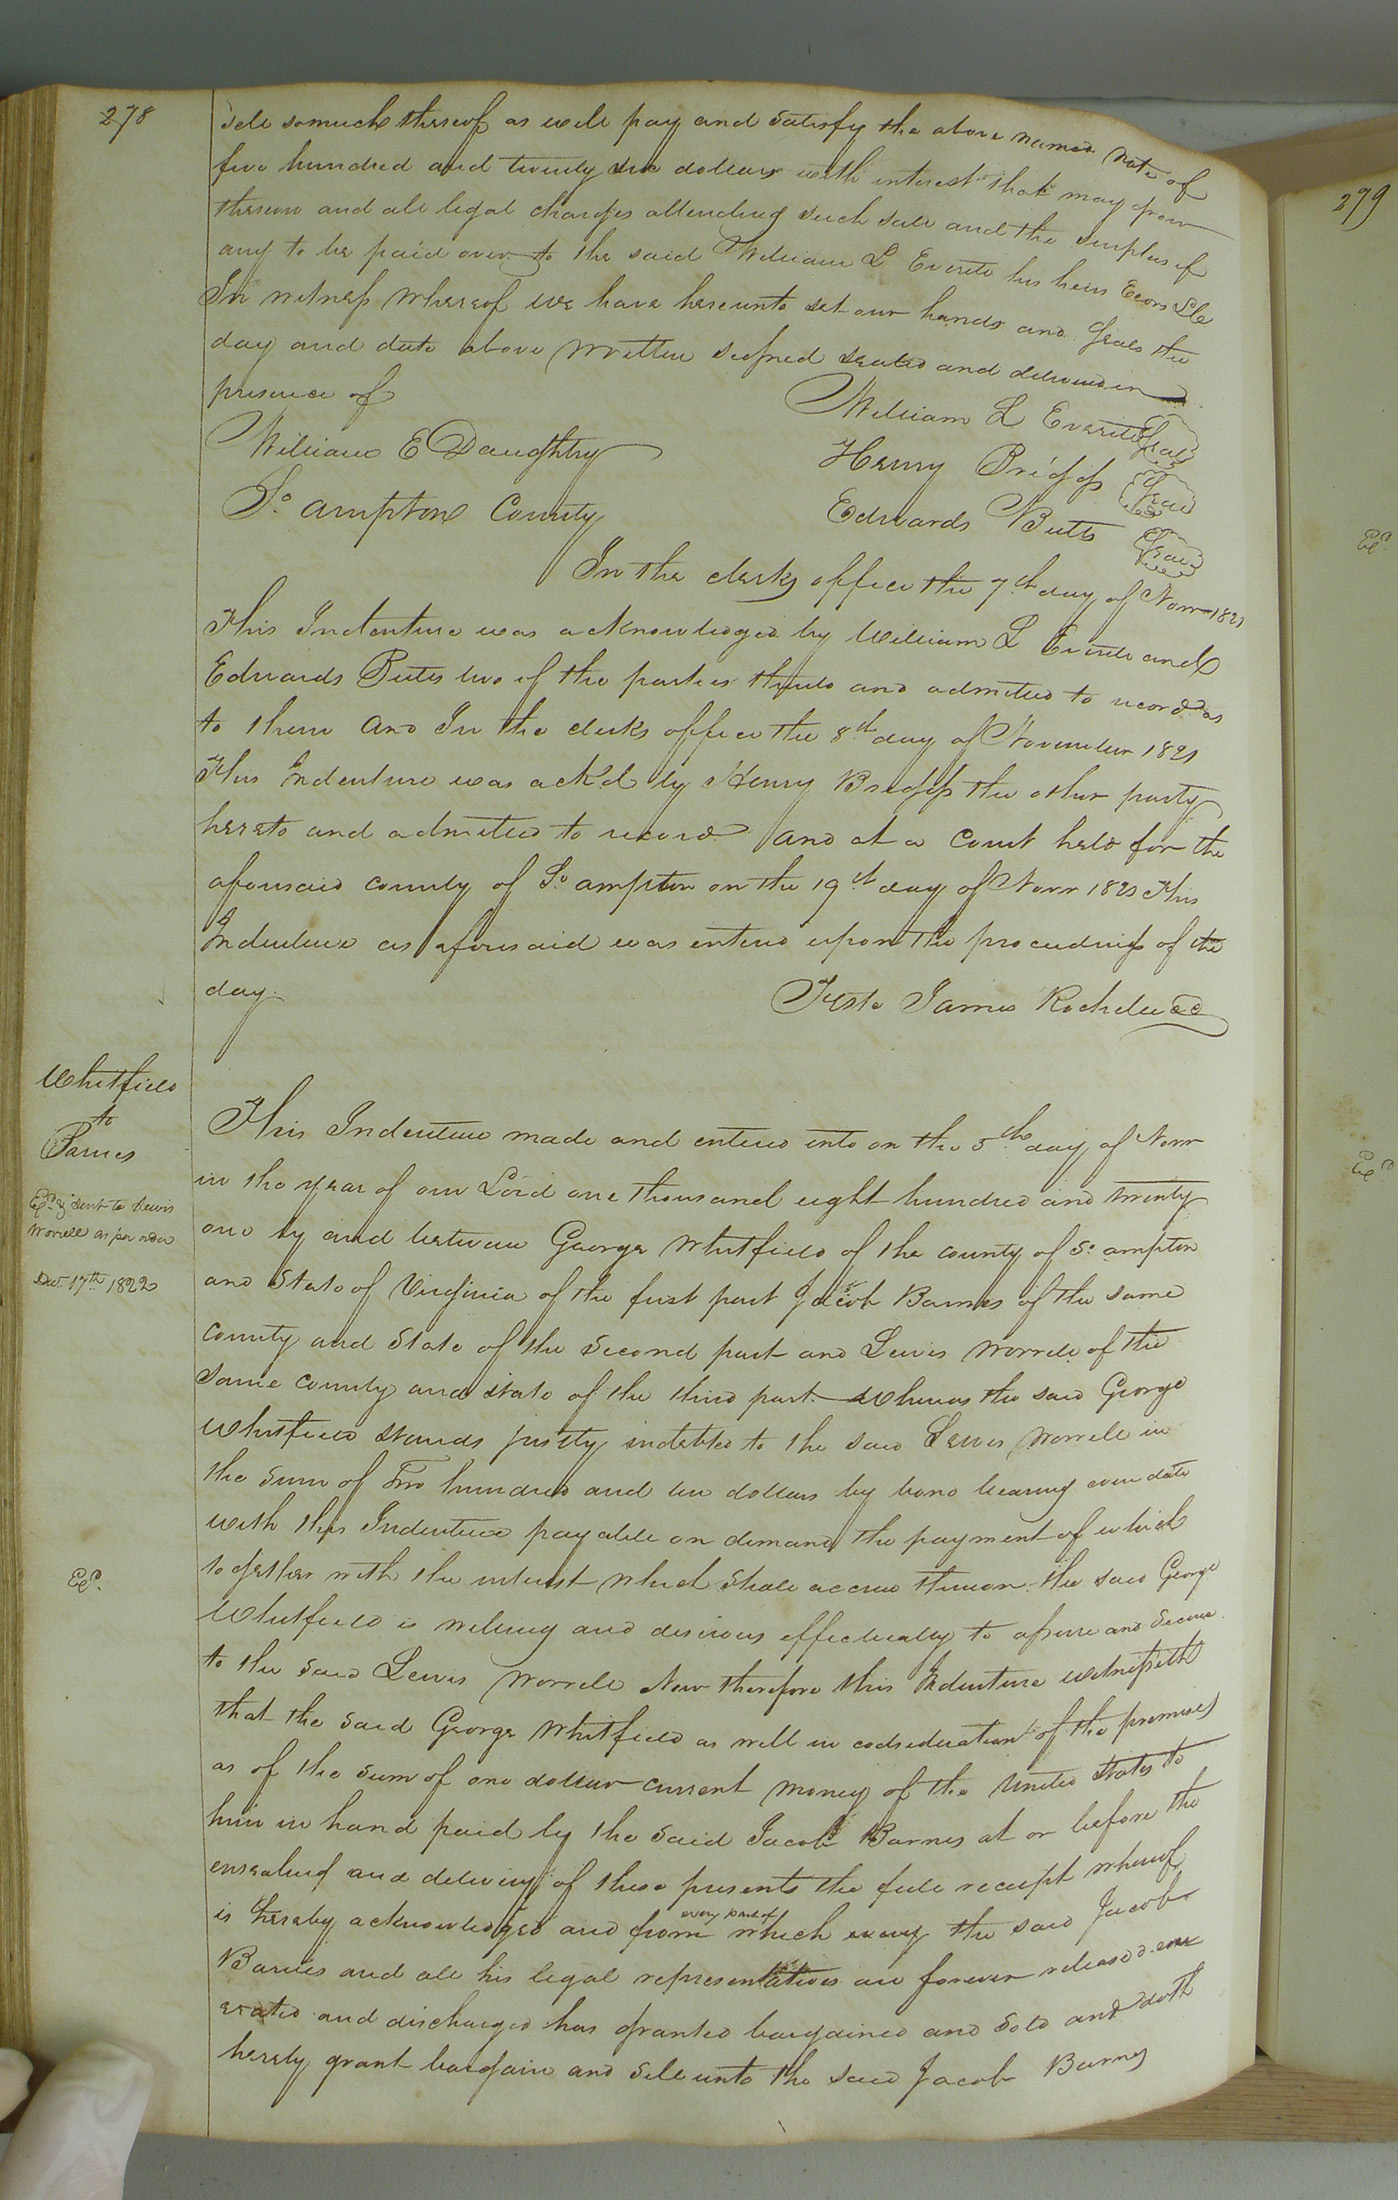 278
Sell somuch thereof as will pay and Satisfy the above named Note of
five hundred and twenty six dollars with interest that may grow
thereon and all legal charges attending such sale and the surplus if
any to be paid over to the said William L Everitt his heirs Exors &c
In witness whereof we have hereunto set our hands and Seals the
day and date above written signed sealed and delivered in
presence of
William L Everitt Seal
William E Daughtry
Henry Briggs Seal
So. ampton County
Edwards Butts Seal
In the clerks office the 7th day of Novr 1821
This Indenture was acknowledged by William L Everitt and
Edwards Butts two of the parties thereto and admitted to record as
to them And In the clerks office the 8th day of November 1821
This Indenture was ack'd by Henry Briggs the other party
hereto and admitted to record And at a Court held for the
aforesaid county of So. ampton on the 19th day of Novr 1821 This
Indenture as aforesaid was entered upon the proceedings of the
day.
Teste James Rochelle CC
Whitfield
to
Barnes
Exd. & Sent to Lewis
Worrell as per order
Decr. 17th 1822
This Indenture made and entered into on the 5th day of Novr
in the year of our Lord one thousand eight hundred and twenty
one by and between George Whitfield of the county of So. ampton
and State of Virginia of the first part Jacob Barnes of the same
county and State of the Second part and Lewis Worrell of the
Same county and state of the third part. Whereas the said George
Whitfield stands justly indebted to the said Lewis Worrell in
the Sum of Two hundred and ten dollars by bond bearing even date
with this Indenture payable on demand the payment of which
together with the interest which shall accrue thereon the said George
Whitfield is willing and desirous effectually to assure and Secure
to the Said Lewis Worrell Now therefore this Indenture witnesseth
that the Said George Whitfield as well in codsideration of the premises
as of the Sum of one dollar current money of the United States to
him in hand paid by the Said Jacob Barnes at or before the
ensealing and delivery of these presents the full receipt whereof
is hereby acknowledged and from every part of which the said Jacob
Barnes and all his legal representatives are forever released exon
erated and discharged has granted bargained and Sold and doth
hereby grant bargain and Sell unto the said Jacob Barnes
Exd.
279
Exd.
Exd.